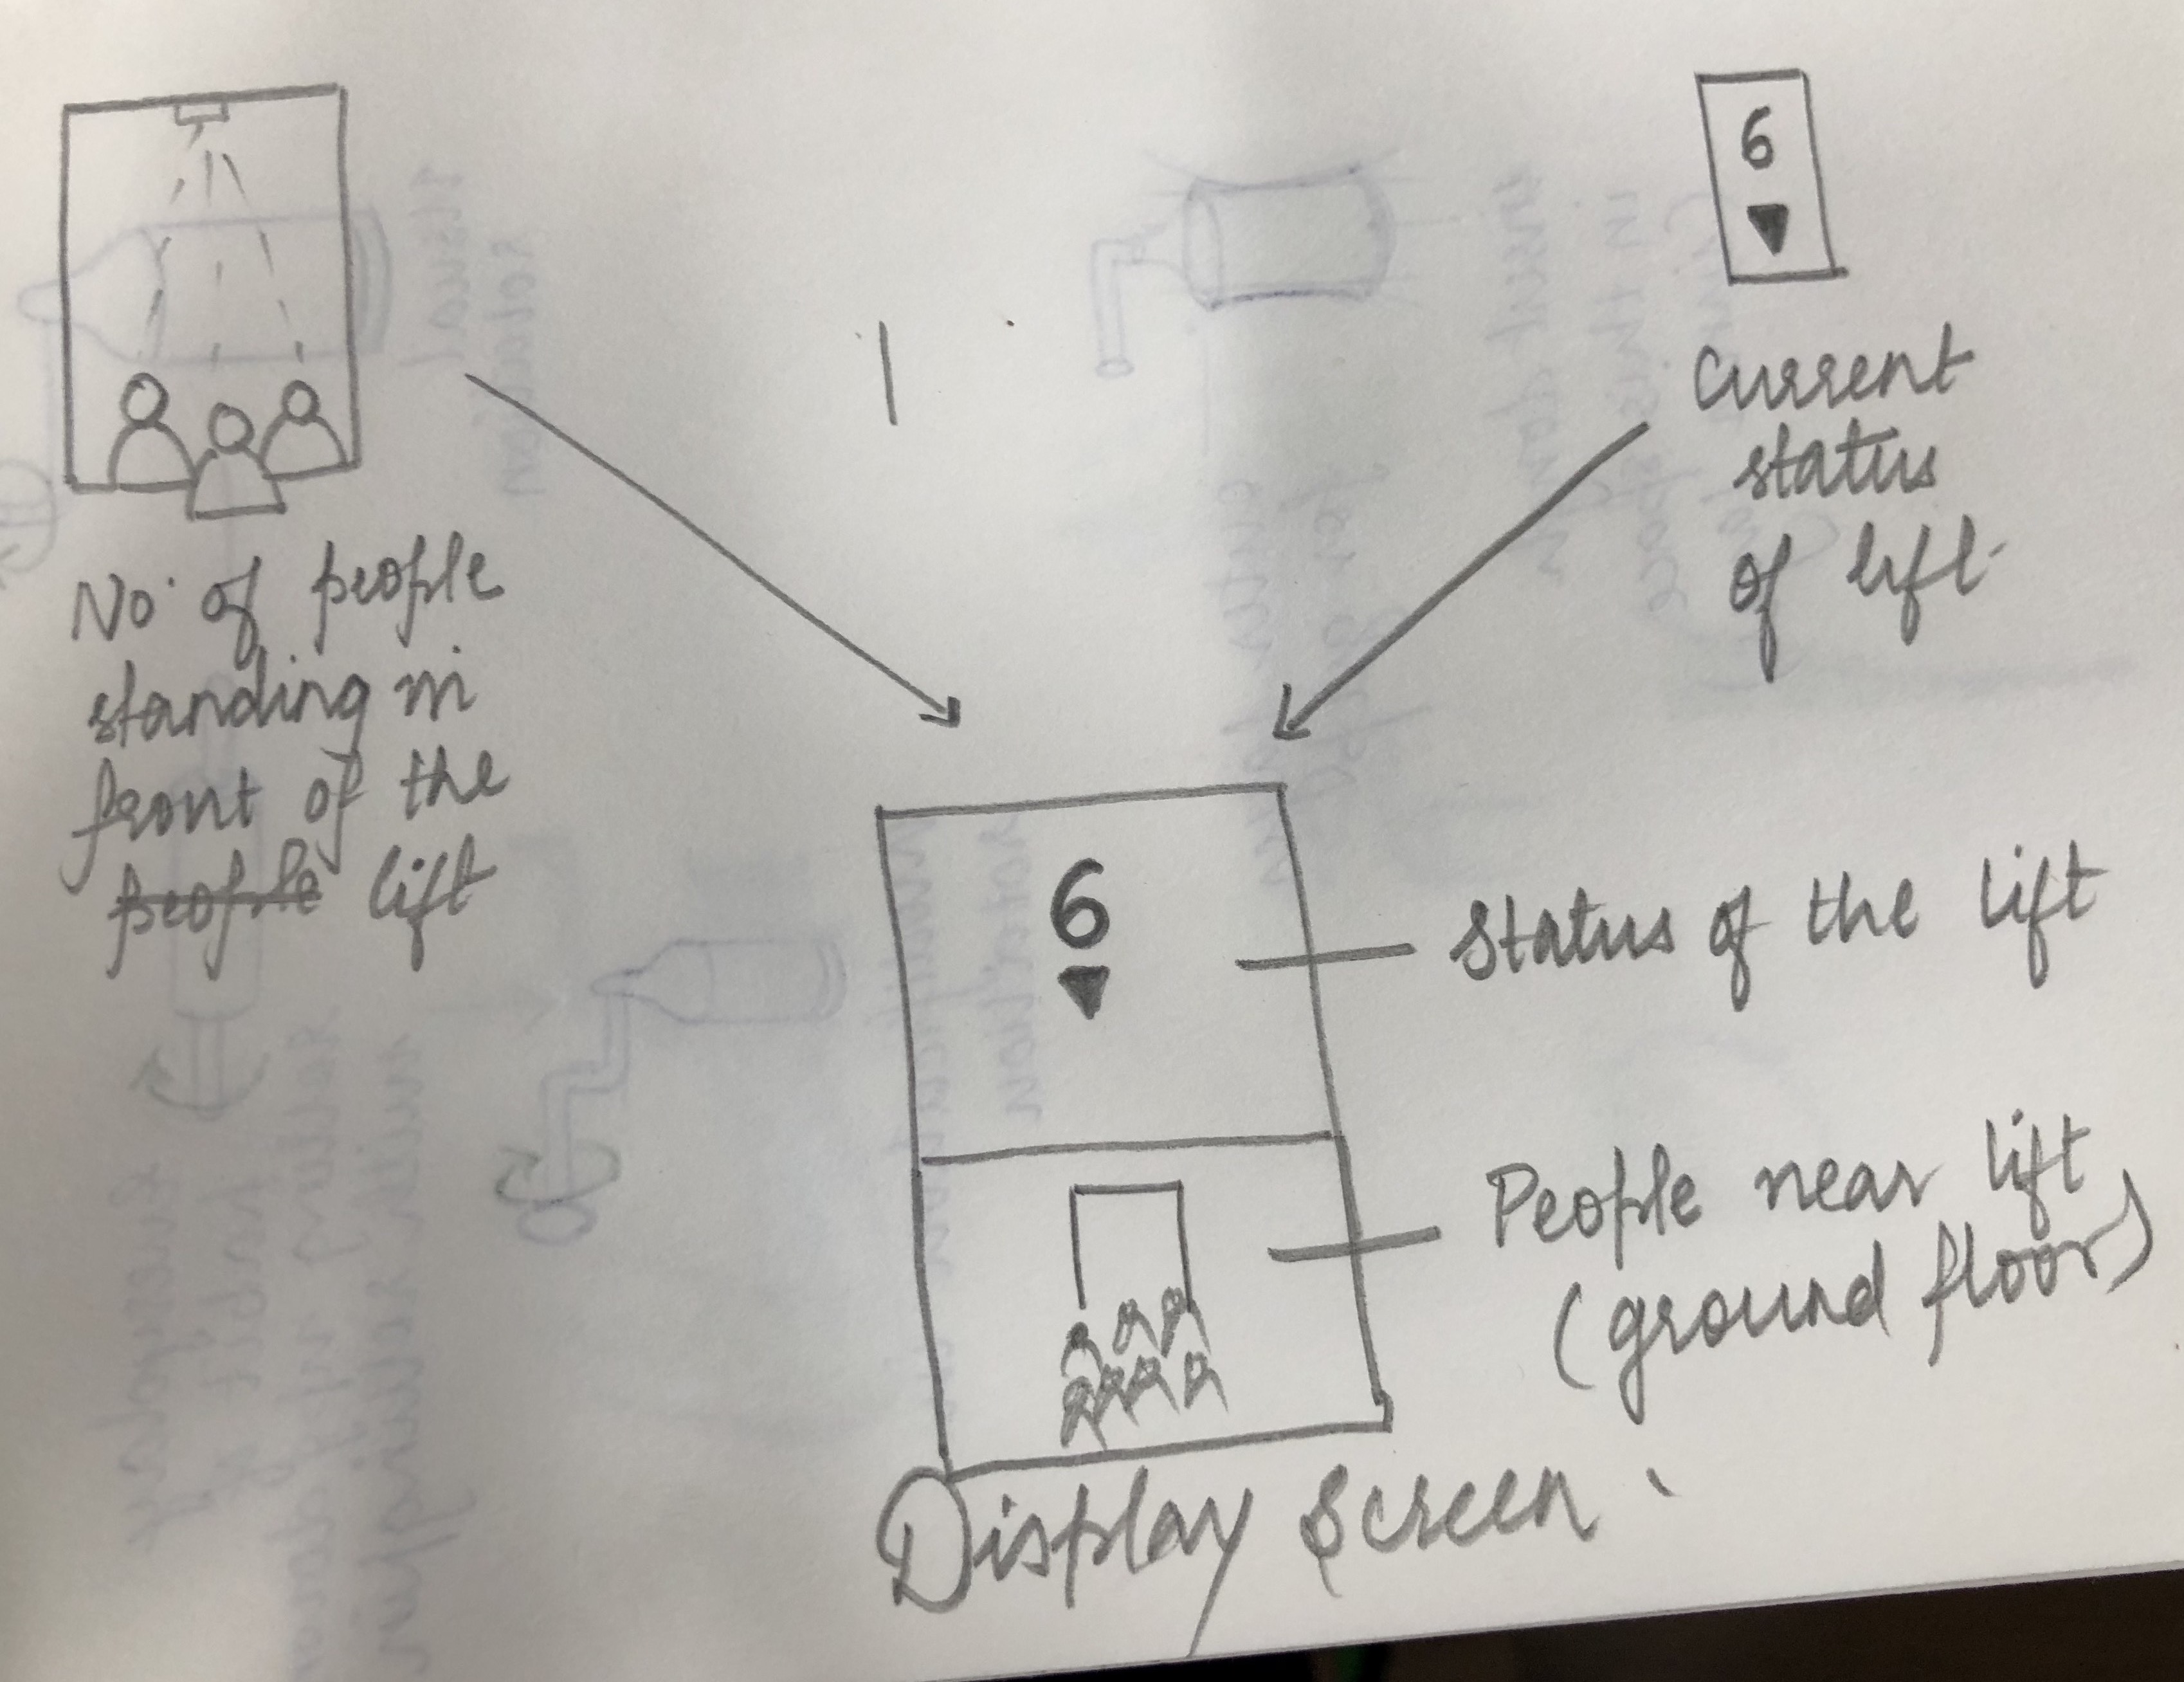 No. of people
standing in
front of the
people lift
6
Current
status
of lift.
6
Status of the lift
People near lift
(ground floor)
Display Screen.